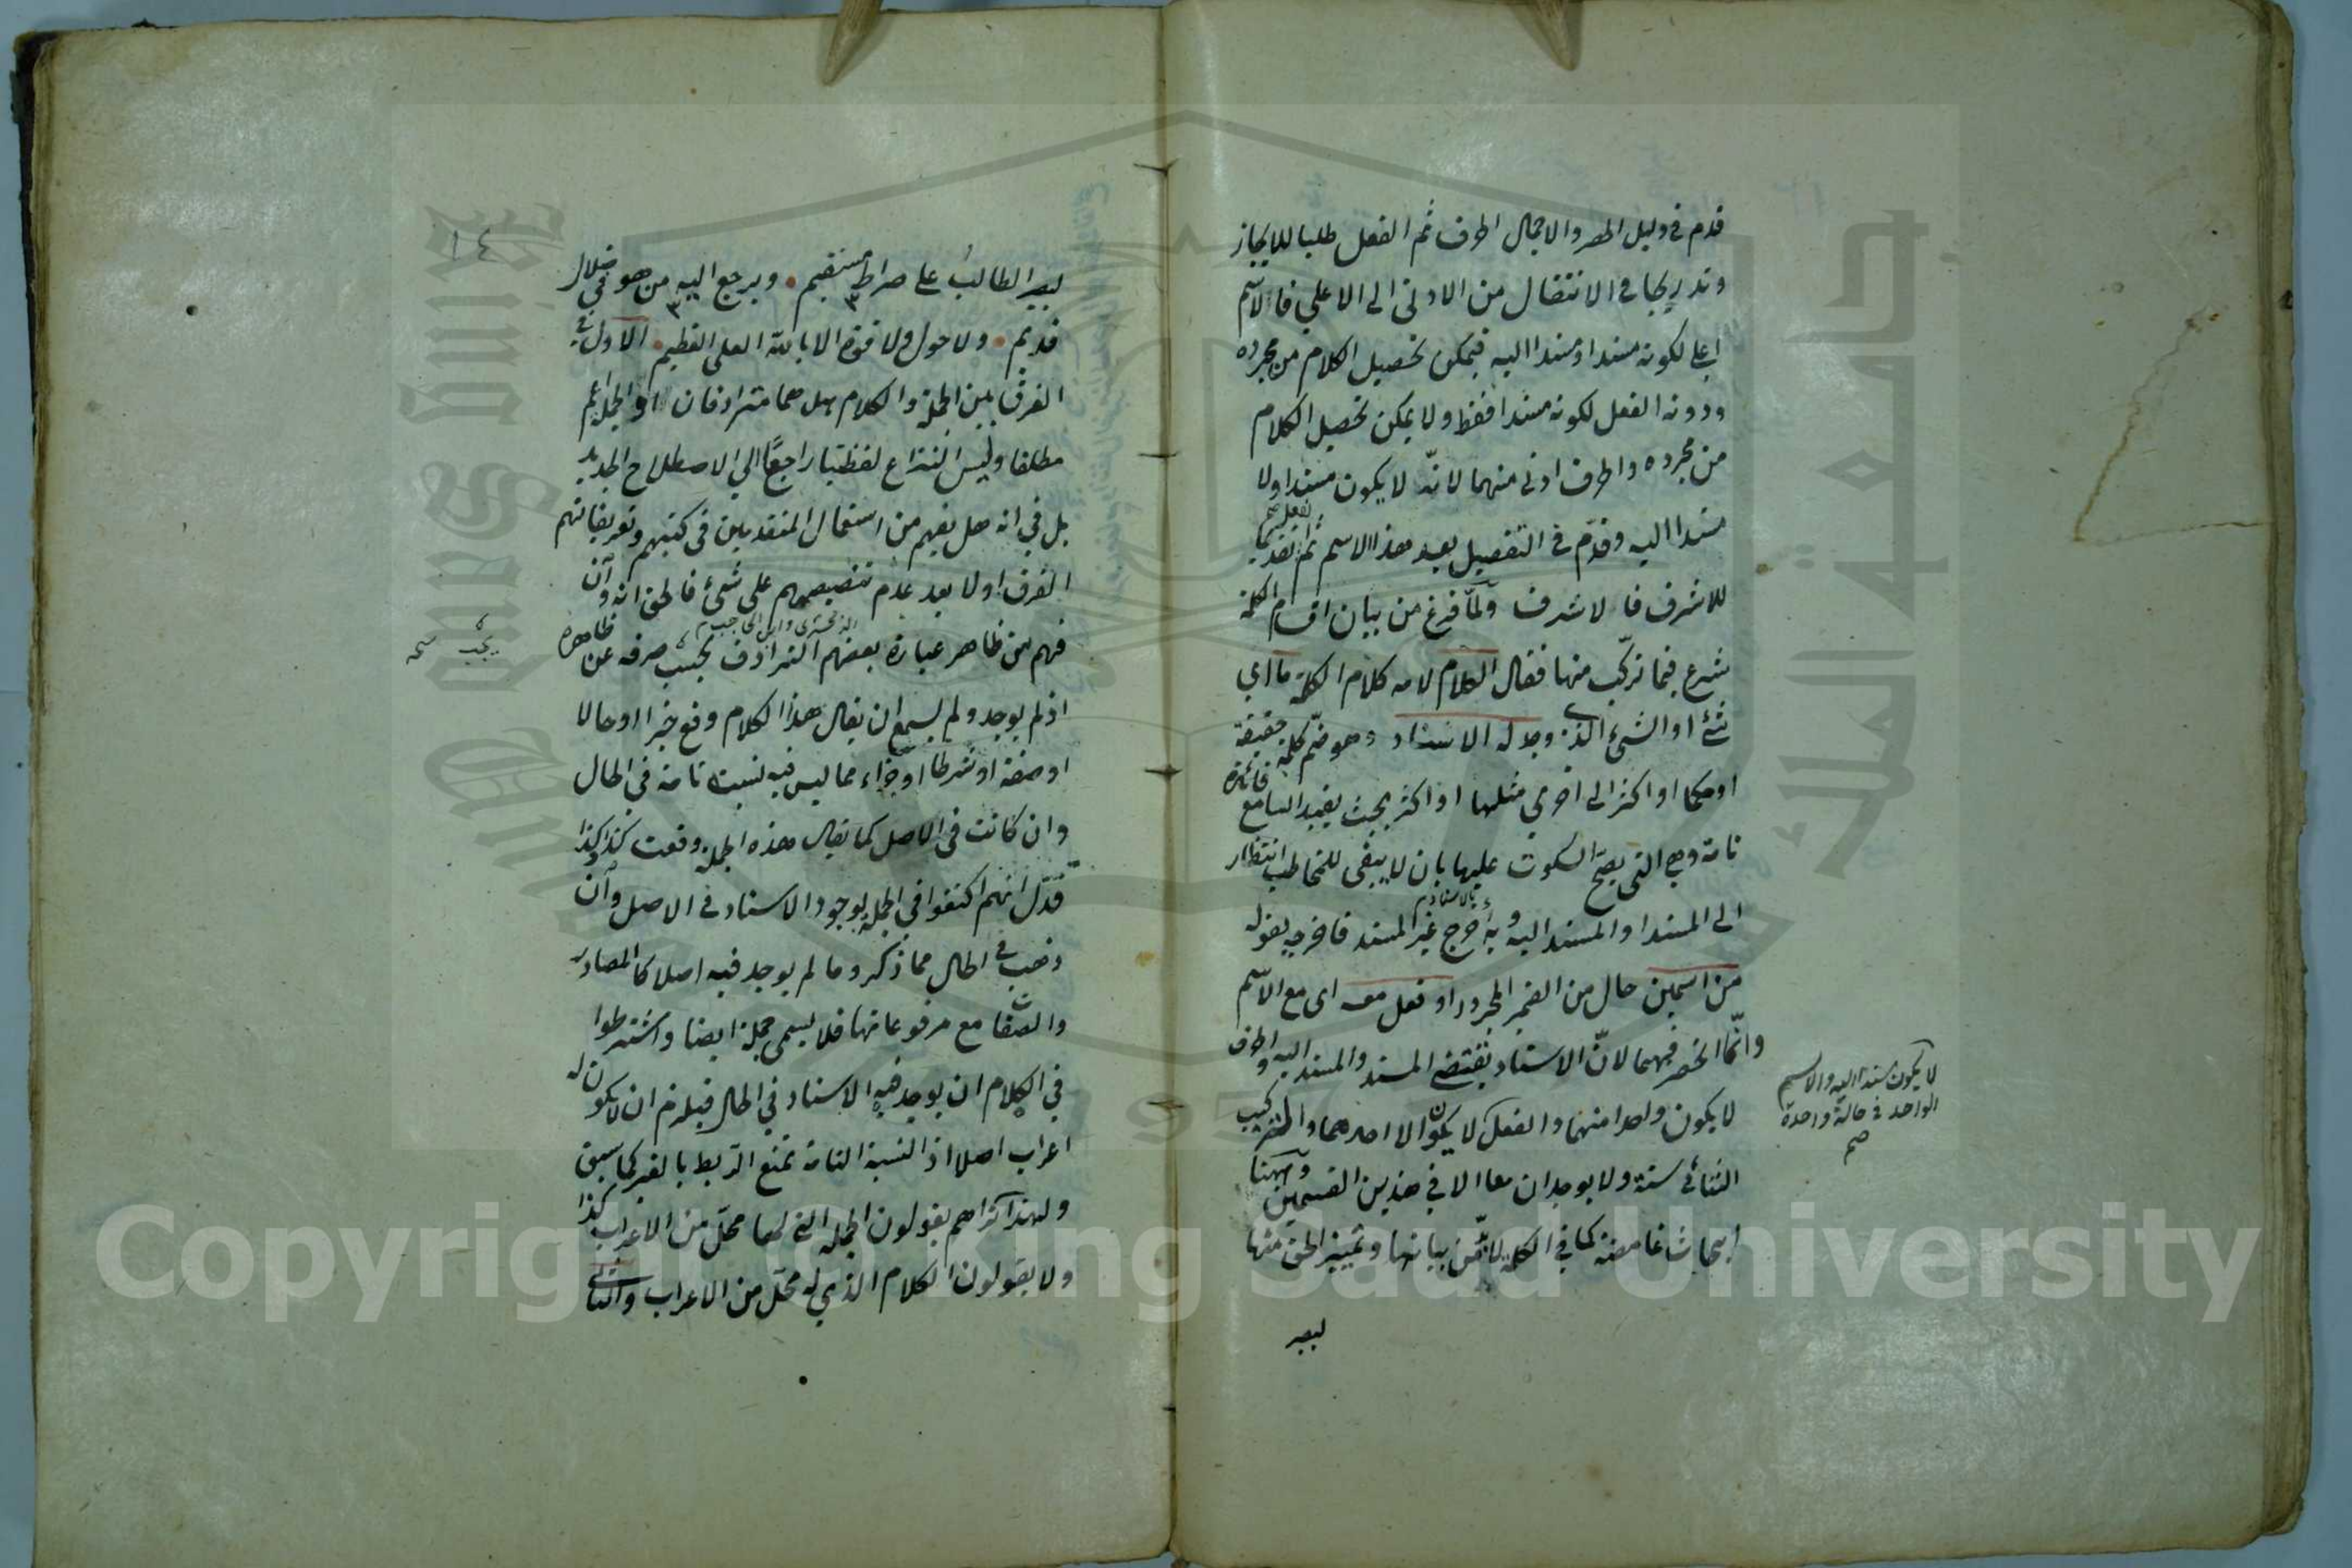 قدم في دليل الحصر والاجمال الحرف ثم الفعل طلبا للايجاز
وتدريجا في الانتقال من الادنى الى الاعلى فالاسم
اعلى لكونه مسندا ومسندا اليه فيمكن تحصيل الكلام من مجرده
ودونه الفعل لكونه مسندا فقط ولا يمكن تحصيل الكلام
من مجرده والحرف ادنى منهما لانّه لا يكون مسندا ولا
مسندا اليه وقدّم في التفصيل بعد هذا الاسم ثم الفعل تقديما
للاشرف فالاشرف ولمّا فرغ من بيان اقسام الكلمة
شرع فيما تركّب منها فقال الكلام لامه كلام الكلمة ما اي
شئ او الشئ الذي وجد له الاسناد وهو ضمّ كلمة حقيقة
او حكما او اكثر الى اخرى مثلها او اكثر بحيث يفيد السامع فائدة
تامة وهي التى يصحّ السكوت عليها بان لا يبقى للمخاطب انتظار
الى المسند او المسند اليه وبه بالاسناد خرج غير المسند فاخرجه بقوله
من اسمين حال من الضمير المجرور او فعل معه اى مع الاسم
وانّما انحصر فيهما لانّ الاسناد يقتضى المسند والمسند اليه والحرف
لا يكون واحدا منهما والفعل لا يكون الا احدهما والتركيب
لا يكون مسندا اليه والاسم
الواحد في حالة واحدة
صح
الثنائي ستة ولا يوجدان معا الا في هذين القسمين وههنا
ابحاث غامضة كما في الكلمة لا بدّ من بيانها وتمييز الحق منها
ليصير
١٤
ليصير الطالب على صراط مستقيم • ويرجع اليه من هو في ضلال
قديم • ولا حول ولا قوة الا بالله العلى العظيم • الاول في
الفرق بين الجملة والكلام هل هما مترادفان او الجملة اعم
مطلقا وليس النزاع لفظيا راجعا الي الاصطلاح الجديد
بل في انه هل يفهم من استعمال المتقدمين فى كتبهم وتعريفاتهم
الفرق اولا بعد عدم تنصيصهم على شئ فالحق انه وان
فهم من ظاهر عبارة بعضهم الزمخشرى وابن الحاجب الترادف يجب صرفه عن ظاهره
يجب نسخه
اذ لم يوجد ولم يسمع ان يقال هذا الكلام وقع خبرا او حالا
او صفة او شرطا او جزاء مما ليس فيه نسبت تامة في الحال
وان كانت في الاصل كما يقال هذه الجملة وقعت كذا وكذا
فدلّ انهم اكتفوا في الجملة بوجود الاسناد في الاصل وان
ذهب في الحال مما ذكر وما لم يوجد فيه اصلا كالمصادر
والصفات مع مرفوعاتها فلا يسمى جملة ايضا واشترطوا
في الكلام ان يوجد فيه الاسناد في الحال فيلزم ان لا يكون له
اعراب اصلا اذ النسبة التامة تمنع الربط بالغير كما سبق
ولهذا تراهم يقولون الجملة التى لها محلّ من الاعراب كذا
ولا يقولون الكلام الذي له محلّ من الاعراب والثاني
Copyright © King Saud University
جامعة الملك سعود
1957